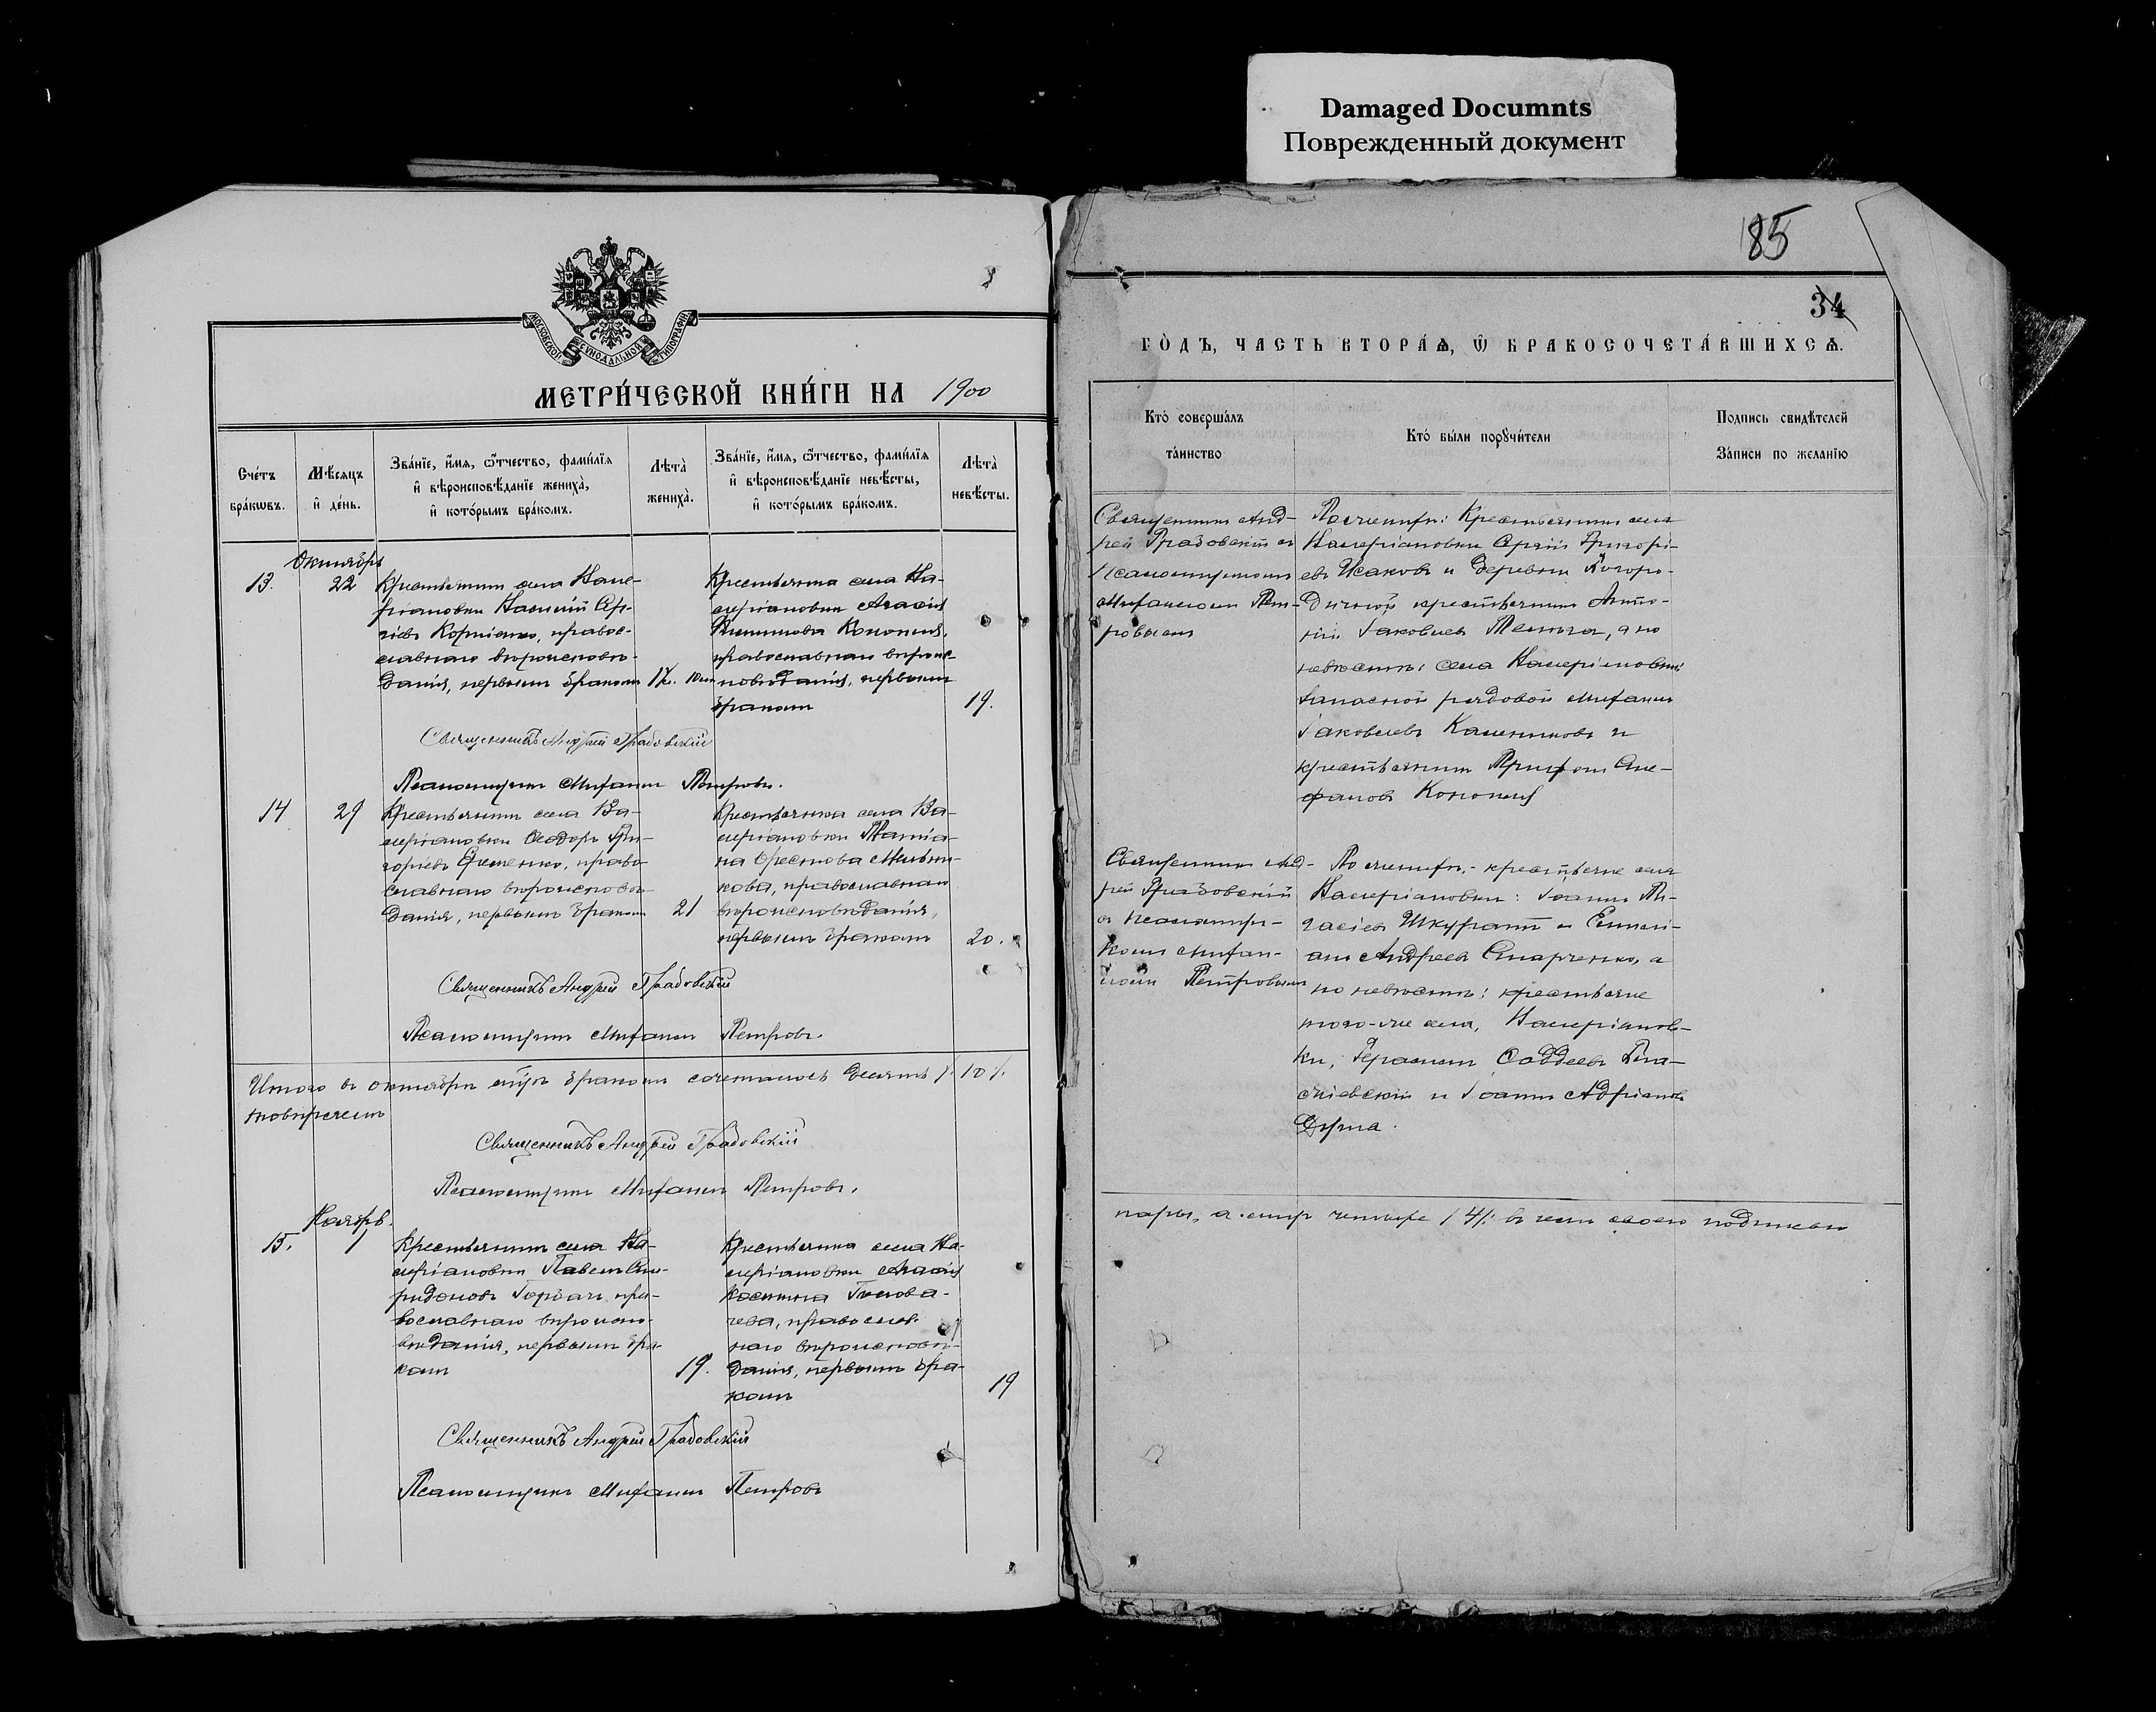 Damaged Documnts
Поврежденный документ
185
34
МОСКОВСКОЙ СѴНОДАЛЬНОЙ ТИПОГРАФІИ
МЕТРИ́ЧЕСКОЙ КНИ́ГИ НА 1900
ГО́ДЪ, ЧАСТЬ ВТОРА́Ѧ, Ѽ БРАКОСОЧЕТА́ВШИХСѦ.
Сче́тъ
бра́кѡвъ.
Мѣ́сѧцъ
и҆ де́нь.
Зва́нїе, и҆́мѧ, ѻ҆́тчество, фамѝлїѧ
и҆ вѣроисповѣ́данїе жениха̀,
и҆ кото́рымъ бра́комъ.
Лѣта̀
жениха̀.
Зва́нїе, и҆́мѧ, ѻ҆́тчество, фамѝлїѧ
и҆ вѣроисповѣ́данїе невѣ́сты,
и҆ кото́рымъ бра́комъ.
Лѣта̀
невѣ́сты.
Октябрь
13.
22
Крестьянинъ села Вале-
ріановки Василій Сер-
гіевъ Корніенко, правос-
лавнаго вѣроисповѣ-
данія, первымъ бракомъ
Крестьянка села Ва-
леріановки Агафія
Кононец,
православнаго вѣроис-
повѣданія, первымъ
бракомъ
19.
Священникъ Андрей Градовскій
Псаломщикъ Митрофанъ Петровъ.
14
29
Крестьянинъ села Ва-
леріановки Ѳеодоръ Гри-
горіевъ право-
славнаго вѣроисповѣ-
данія, первымъ бракомъ
21
Крестьянка села Ва-
леріановки Татіа-
на Орестова Мельни-
кова, православнаго
вѣроисповѣданія,
первымъ бракомъ
20.
Священникъ Андрей Градовскій
Псаломщикъ Митрофанъ Петровъ.
Итого въ октябрѣ м-цѣ бракомъ сочеталось десять /10/.
Священникъ Андрей Градовскій
Псаломщикъ Митрофанъ Петровъ.
Ноябрь.
15.
7
Крестьянинъ села Ва-
леріановки Павелъ Спи-
ридоновъ Горбачъ, пра-
вославнаго вѣроиспо-
вѣданія, первымъ бра-
комъ
19.
Крестьянка села Ва-
леріановки Агафія
Космина Голова-
чева, православ-
наго вѣроисповѣ-
данія, первымъ бра-
комъ
19
Священникъ Андрей Градовскій
Псаломщикъ Митрофанъ Петровъ
Кто́ соверша́лъ
та́инство
Кто́ бы́ли порꙋчи́тели
Подпись свидѣтелей
За́писи по желанїю
Священникъ Анд-
рей Градовскій съ
Псаломщикомъ
Митрофаномъ Пет-
ровымъ
По женихѣ: Крестьянинъ села
Валеріановки Сергій Григорі-
евъ Исаковъ и деревни Богоро-
дичной крестьянинъ Анто-
ній Іаковлевъ а по
невѣстѣ: села Валеріановки
запасной рядовой Митрофанъ
Іаковлевъ Калениковъ и
крестьянинъ Трифонъ Сте-
фановъ Кононец
Священникъ Анд-
рей Градовскій
съ псаломщи-
комъ Митрофа-
номъ Петровымъ
По женихѣ: крестьяне села
Валеріановки: Іоаннъ
Шкуратъ и Емели-
анъ Андреевъ Старченко, а
по невѣстѣ: крестьяне
того-же села, Валеріанов-
ки, Герасимъ Ѳаддеевъ
и Іоаннъ Адріановъ
Дурна.
пары, а четыре /4/. въ чемъ своею подписью